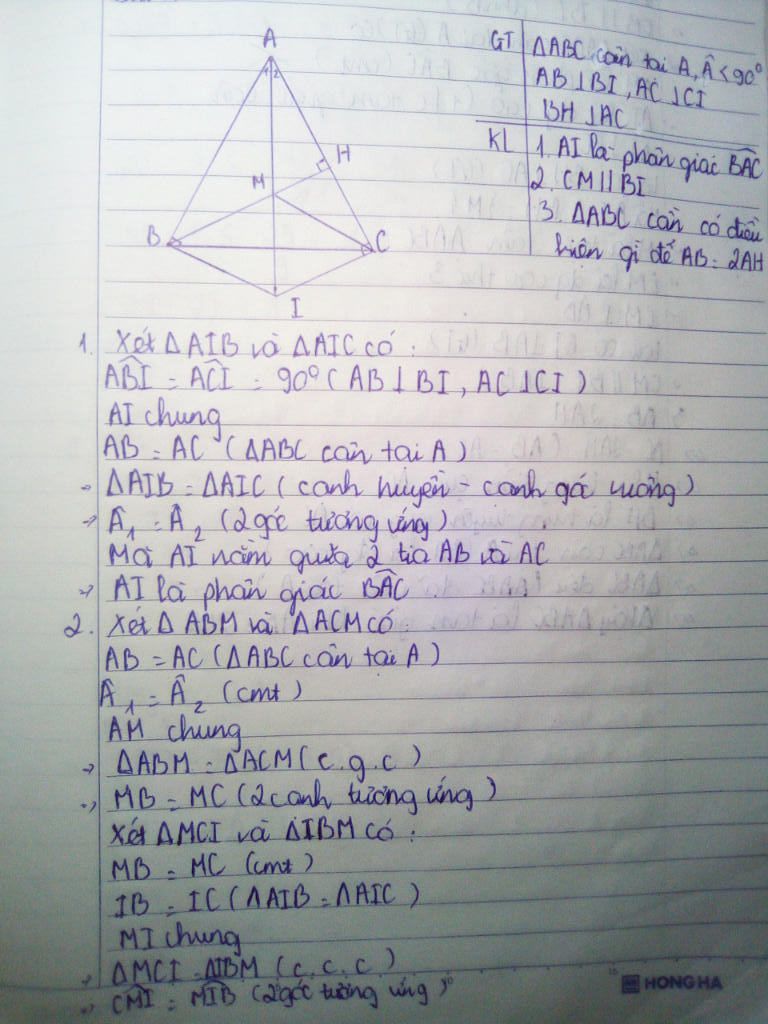 A
1 2
H
M
B
C
I
GT
ΔABC cân tại A, Â < 90°
AB ⊥ BI, AC ⊥ CI
BH ⊥ AC
KL
1. AI là phân giác BÂC
2. CM // BI
3. ΔABC cần có điều
kiện gì để AB = 2AH
1. Xét ΔAIB và ΔAIC có:
ABI = ACI = 90° (AB ⊥ BI, AC ⊥ CI)
AI chung
AB = AC (ΔABC cân tại A)
→ ΔAIB = ΔAIC (cạnh huyền - cạnh góc vuông)
→ Â₁ = Â₂ (2 góc tương ứng)
Mà AI nằm giữa 2 tia AB và AC
→ AI là phân giác BÂC
2. Xét ΔABM và ΔACM có:
AB = AC (ΔABC cân tại A)
Â₁ = Â₂ (cmt)
AM chung
→ ΔABM = ΔACM (c.g.c)
→ MB = MC (2 cạnh tương ứng)
Xét ΔMCI và ΔIBM có:
MB = MC (cmt)
IB = IC (ΔAIB = ΔAIC)
MI chung
→ ΔMCI = ΔIBM (c.c.c)
→ CMI = MIB (2 góc tương ứng)
HONG HA